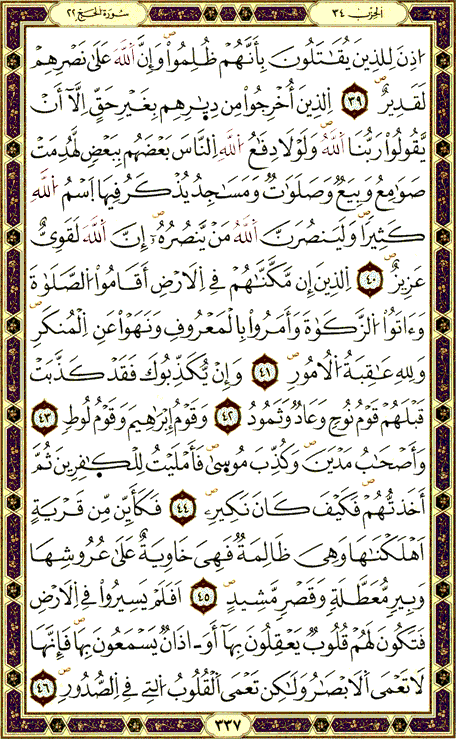 الحزب ٣٤
سُورَةُ الحَجّ ٢٢
اُذِنَ لِلذِينَ يُقَٰتَلُونَ بِأَنَّهُمْ ظُلِمُواْ وَإِنَّ اَ۬للَّهَ عَلَىٰ نَصْرِهِمْ
لَقَدِيرٌ ٣٩ اِ۬لذِينَ أُخْرِجُواْ مِن دِيٰ۪رِهِم بِغَيْرِ حَقٍّ اِلَّآ أَنْ
يَّقُولُواْ رَبُّنَا اَ۬للَّهُ وَلَوْلَا دِفَٰعُ اُ۬للَّهِ اِ۬لنَّاسَ بَعْضَهُم بِبَعْضٖ لَّهُدِمَت
صَّوَٰمِعُ وَبِيَعٞ وَصَلَوَٰتٞ وَمَسَٰجِدُ يُذْكَرُ فِيهَا اَ۪سْمُ اُ۬للَّهِ
كَثِيراٗ وَلَيَنصُرَنَّ اَ۬للَّهُ مَنْ يَّنصُرُهُۥٓ إِنَّ اَ۬للَّهَ لَقَوِيٌّ
عَزِيزٌ ٤٠ اِ۬لذِينَ إِن مَّكَّنَّٰهُمْ فِے اِ۬لَارْضِ أَقَامُواْ اُ۬لصَّلَوٰةَ
وَءَاتَوُاْ اُ۬لزَّكَوٰةَ وَأَمَرُواْ بِالْمَعْرُوفِ وَنَهَوْاْ عَنِ اِ۬لْمُنكَرِ
وَلِلهِ عَٰقِبَةُ اُ۬لُامُورِ ٤١ وَإِنْ يُّكَذِّبُوكَ فَقَدْ كَذَّبَتْ
قَبْلَهُمْ قَوْمُ نُوحٖ وَعَادٞ وَثَمُودُ ٤٢ وَقَوْمُ إِبْرَٰهِيمَ وَقَوْمُ لُوطٖ ٤٣
وَأَصْحَٰبُ مَدْيَنَ وَكُذِّبَ مُوس۪ىٰ فَأَمْلَيْتُ لِلْكٰ۪فِرِينَ ثُمَّ
أَخَذتُّهُمْ فَكَيْفَ كَانَ نَكِيرِۦ ٤٤ فَكَأَيِّن مِّن قَرْيَةٍ
اَهْلَكْنَٰهَا وَهِيَ ظَالِمَةٞ فَهِيَ خَاوِيَةٌ عَلَىٰ عُرُوشِهَا
وَبِيرٖ مُّعَطَّلَةٖ وَقَصْرٖ مَّشِيدٍ ٤٥ اَفَلَمْ يَسِيرُواْ فِے اِ۬لَارْضِ
فَتَكُونَ لَهُمْ قُلُوبٞ يَعْقِلُونَ بِهَآ أَوَ ـ اذَانٞ يَسْمَعُونَ بِهَا فَإِنَّهَا
لَا تَعْمَى اَ۬لَابْصَٰرُ وَلَٰكِن تَعْمَى اَ۬لْقُلُوبُ اُ۬لتِے فِے اِ۬لصُّدُورِ ٤٦
٣٣٧